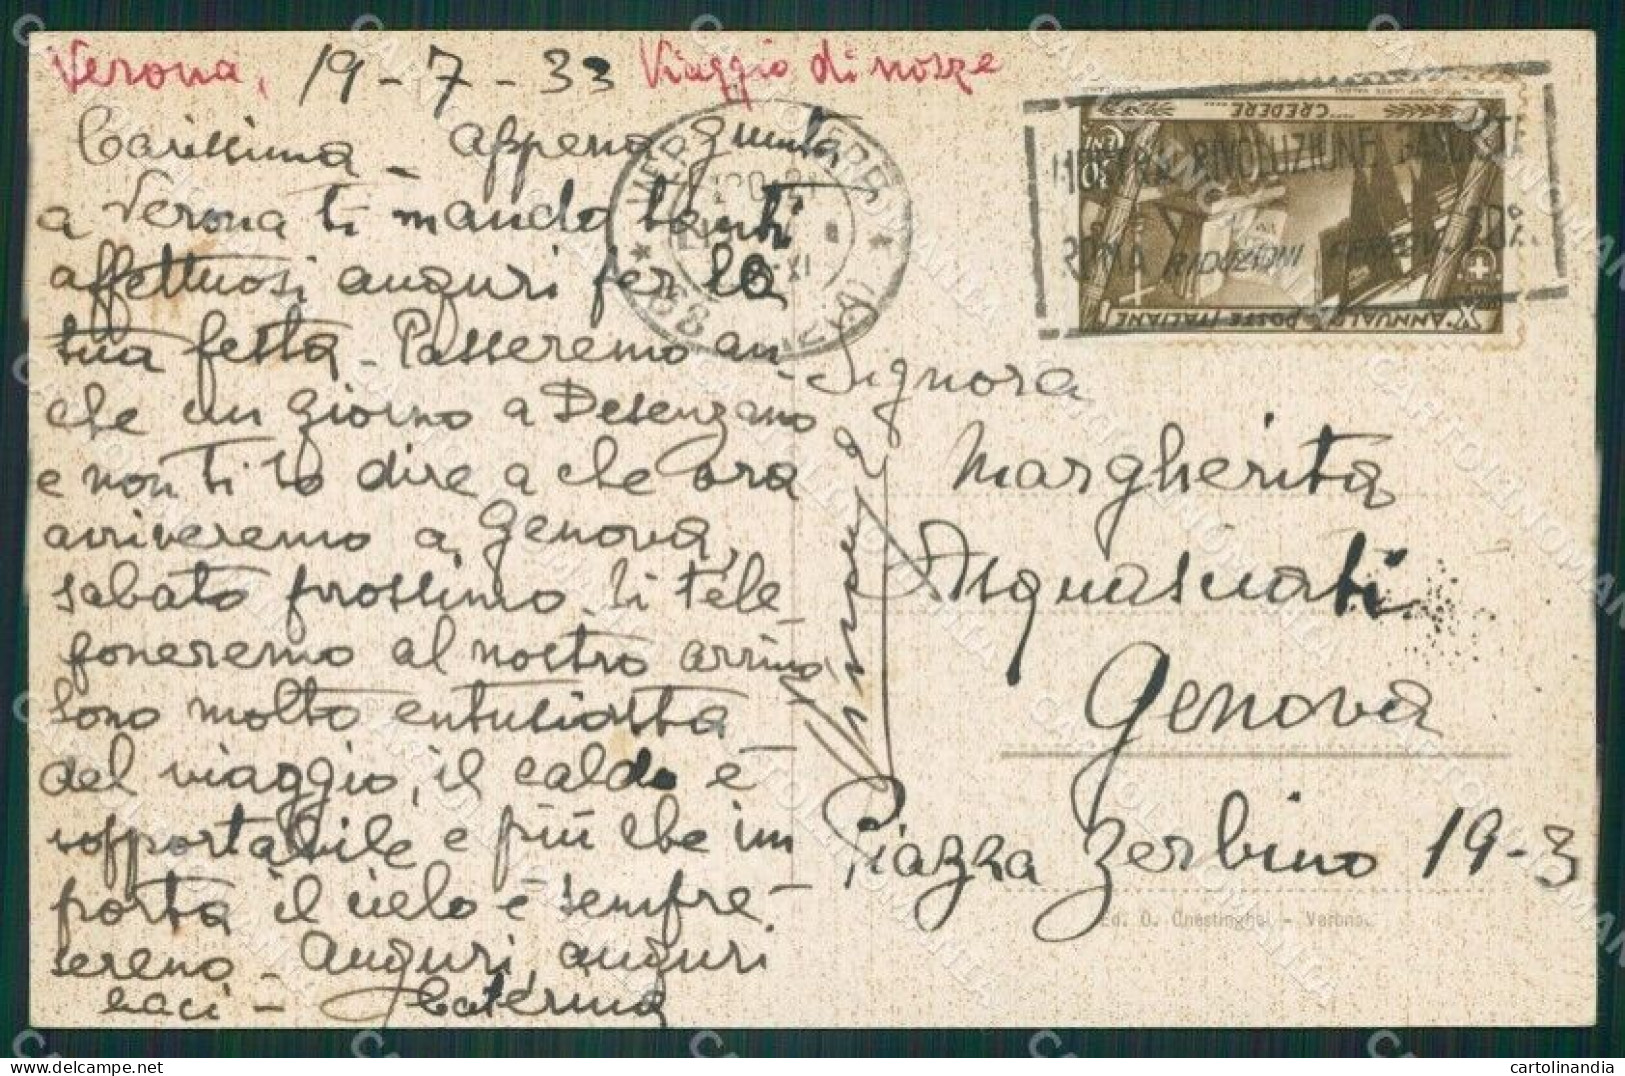 Verona, 19-7-33 Viaggio di nozze
Carissima - appena giunta
a Verona ti mando tanti
affettuosi auguri per la
tua festa - Passeremo an-
che un giorno a Desenzano
e non ti so dire a che ora
arriveremo a Genova,
sabato prossimo. Ti tele
foneremo al nostro arrivo
Sono molto entusiasta
del viaggio, il caldo è
sopportabile e più che im
porta il cielo è sempre
sereno - auguri, auguri
baci - Caterina
Signora
Margherita
Acquasciati
Genova
Piazza Zerbino 19-3
Ed. O. Onestinghel - Verona.
....CREDERE....
X° ANNUALE POSTE ITALIANE
MOSTRA RIVOLUZIONE FASCISTA
ROMA RIDUZIONI FERROV. 70%
cartolinandia